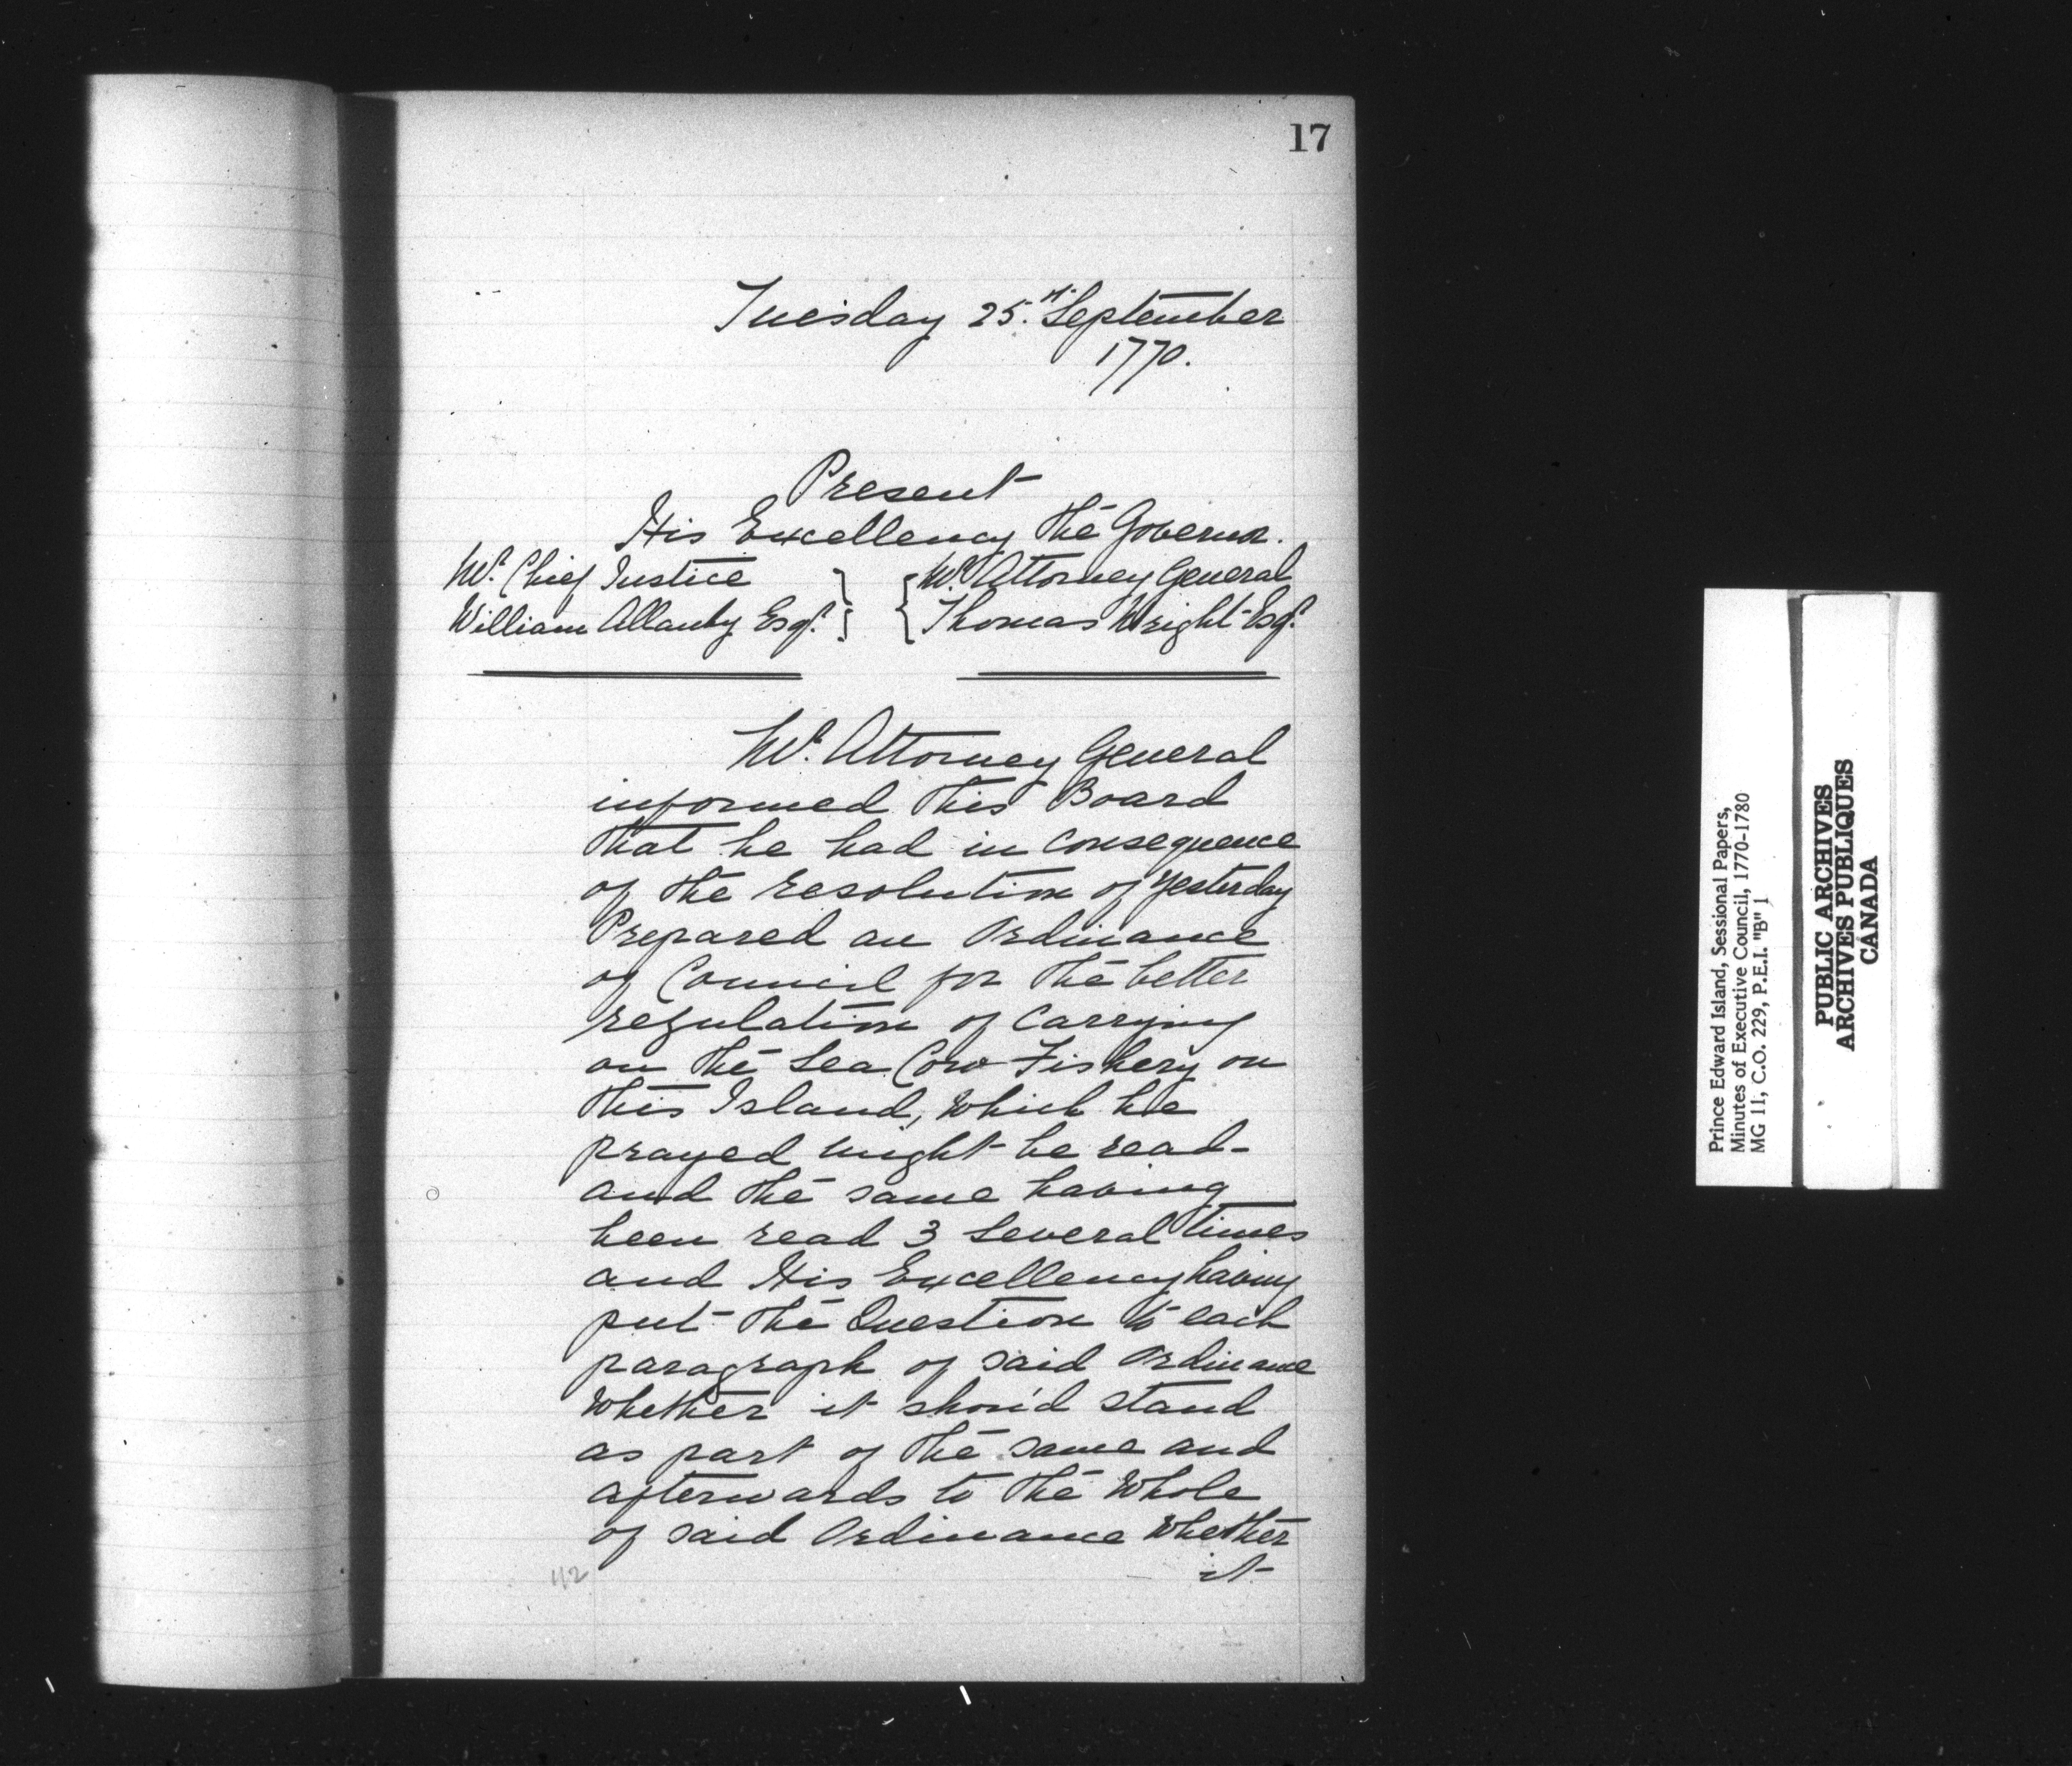 17
Tuesday 25.th September
1770.
Present
His Excellency the Governor.
Mr. Chief Justice } { Mr. Attorney General
William Allanby Esqr. } { Thomas Wright Esqr.
Mr. Attorney General
informed this Board
that he had in consequence
of the resolution of yesterday
Prepared an Ordinance
of Council for the better
regulation of Carrying
on the Sea Cow Fishery on
this Island, which he
prayed might be read-
and the same having
been read 3 several times
and His Excellency having
put the Question to each
paragraph of said Ordinance
Whether it shou'd stand
as part of the same and
afterwards to the Whole
of said Ordinance Whether
it
112
Prince Edward Island, Sessional Papers,
Minutes of Executive Council, 1770-1780
MG 11, C.O. 229, P.E.I. "B" 1
PUBLIC ARCHIVES
ARCHIVES PUBLIQUES
CANADA